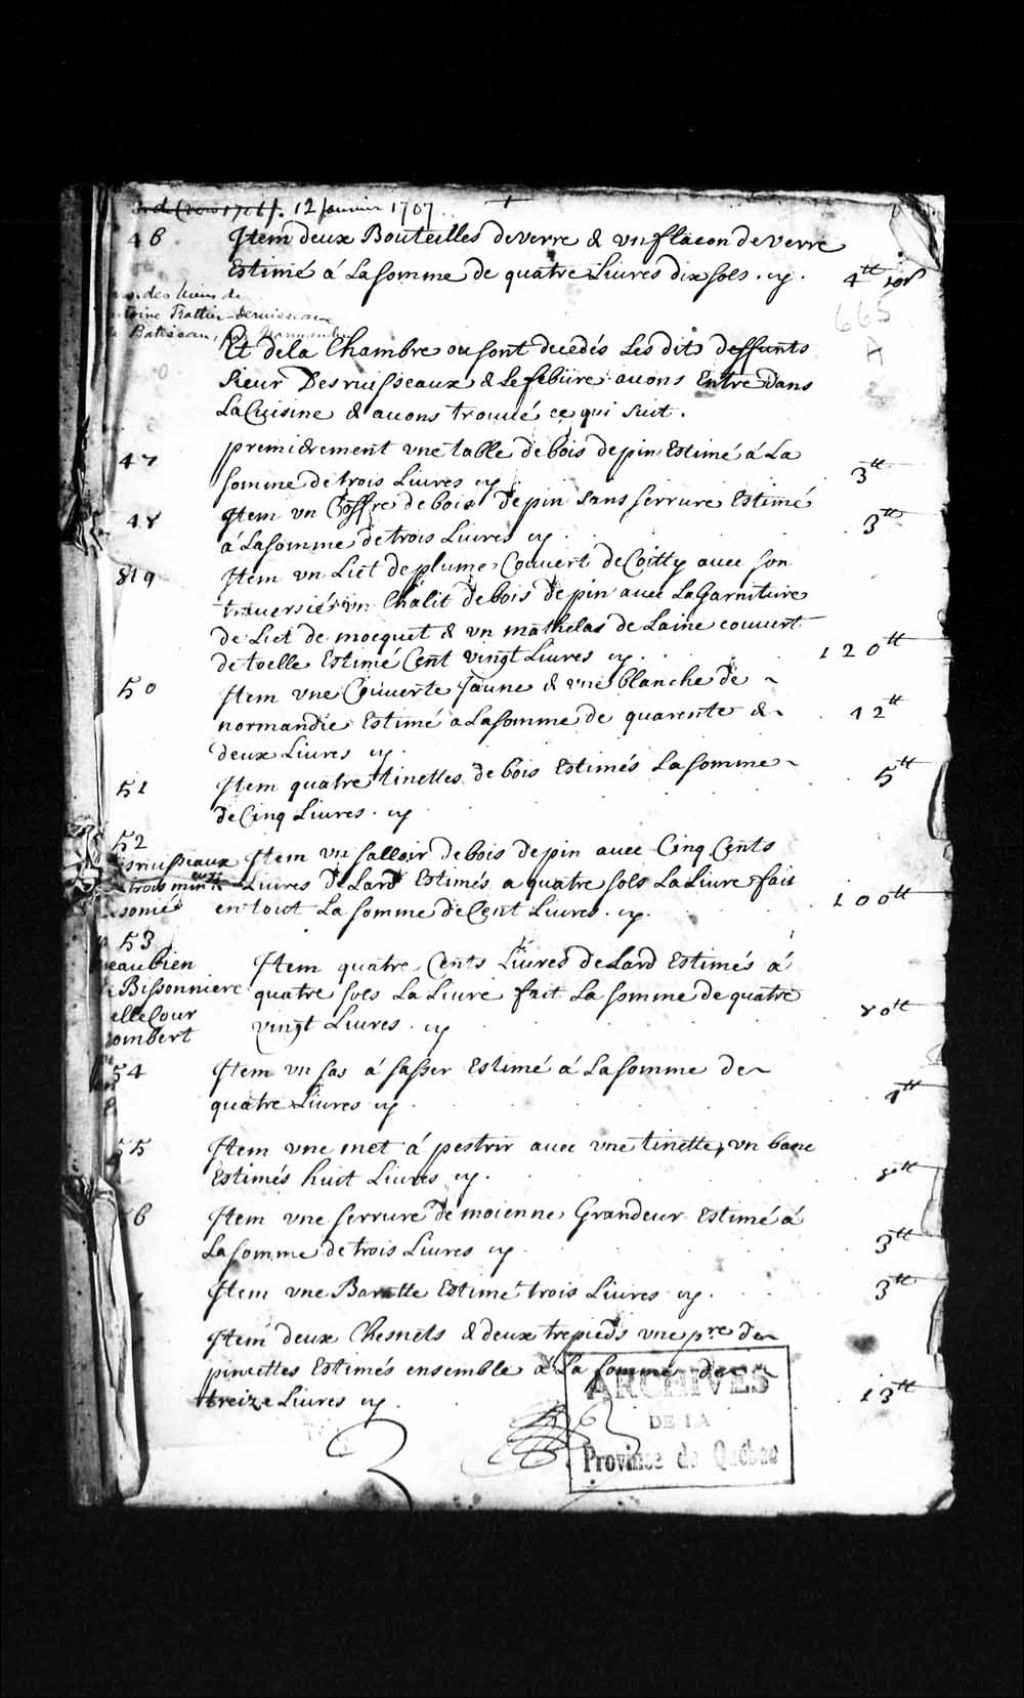 12 Janvier 1707.
46 Item deux Bouteilles de verre & vn flacon de verre
Estimé á La Somme de quatre Liures dix Sols. cy. 4tt 10s
665
des biens de
Antoine Trottier desruisseaux
Batiscan,
Et de la Chambre ou sont decedés Les dits deffunts
Sieur Desruisseaux & Lefebure auons Entré dans
La Cuisine & auons trouué ce qui suit.
47 premierement vne table de bois de pin Estimé á La
somme de trois Liures cy 3tt
48 Item vn Coffre de bois de pin sans serrure Estimé
á La Somme de trois Liures cy. 3tt
49 Item vn Lict de plume Couuert de Coitty auec son
trauersié vn Chalit de bois de pin auec La Garniture
de Lict de mocquet & vn mathelas de Laine couuert
de toelle Estimé Cent vingt Liures cy. 120tt
50 Item vne Couuerte Jaune & vne blanche de
normandie Estimé a La Somme de quarente &
deux Liures cy. 42tt
51 Item quatre tinettes de bois Estimés La Somme
de Cinq Liures. cy 5tt
52
Desruisseaux Item vn salloir de bois de pin auec Cinq Cents
Liures de Lard Estimés a quatre sols La Liure fait
en tout La Somme de Cent Liures. cy. 100tt
53
Beaubien Item quatre Cents Liures de Lard Estimés á
Bissonniere quatre sols La Liure fait La Somme de quatre
elleCour
ombert vingt Liures. cy 80tt
54 Item vn sas á sasser Estimé á La Somme de
quatre Liures cy. 4tt
55 Item vne met á pestrir auec vne tinette, vn banc
Estimés huit Liures cy. 8tt
6 Item vne serrure de moienne Grandeur Estimé á
La Somme de trois Liures cy 3tt
Item vne Baratte Estimé trois Liures cy. 3tt
Item deux Chesnets & deux trepieds vne pre de
pincettes Estimés ensemble á La Somme de
treize Liures cy. 13tt
ARCHIVES
DE LA
Province de Québec